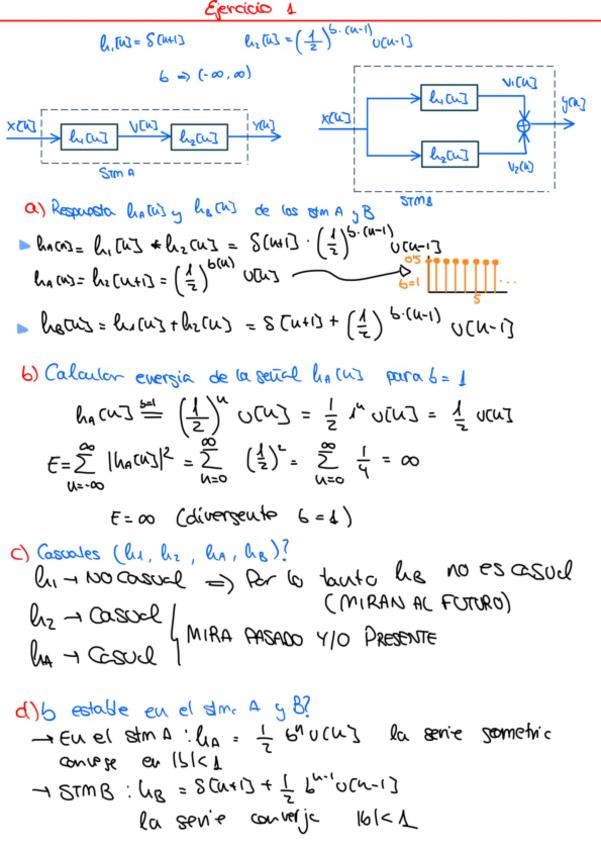 Ejercicio 1
h₁[n] = δ[n+1]    h₂[n] = (1/2)^{b·(n-1)} u[n-1]
b ⇒ (-∞, ∞)
x[n] h₁[n] v[n] h₂[n] y[n]
STM A
x[n] h₁[n] v₁[n] y[n]
h₂[n] v₂[n]
STM B
a) Respuesta hA[n] y hB[n] de los stm A y B
hA[n] = h₁[n] * h₂[n] = δ[n+1] · (1/2)^{b·(n-1)} u[n-1]
hA[n] = h₂[n+1] = (1/2)^{b(n)} u[n]
0'5
b=1
5
...
hB[n] = h₁[n] + h₂[n] = δ[n+1] + (1/2)^{b·(n-1)} u[n-1]
b) Calcular energia de la señal hA[n] para b = 1
hA[n] =^{b=1} (1/2)^n u[n] = 1/2 1^n u[n] = 1/2 u[n]
E = Σ_{n=-∞}^{∞} |hA[n]|² = Σ_{n=0}^{∞} (1/2)² = Σ_{n=0}^{∞} 1/4 = ∞
E = ∞ (divergente b = 1)
c) Casuales (h₁, h₂, hA, hB)?
h₁ → NO casual ⇒ Por lo tanto hB no es casual
(MIRAN AL FUTURO)
h₂ → Casual
MIRA PASADO Y/O PRESENTE
hA → Casual
d) b estable en el stmc A y B?
→ En el stm A : hA = 1/2 b^n u[n] la serie geometric
converge en |b|<1
→ STM B : hB = δ[n+1] + 1/2 b^{n-1} u[n-1]
la serie converja |b|<1